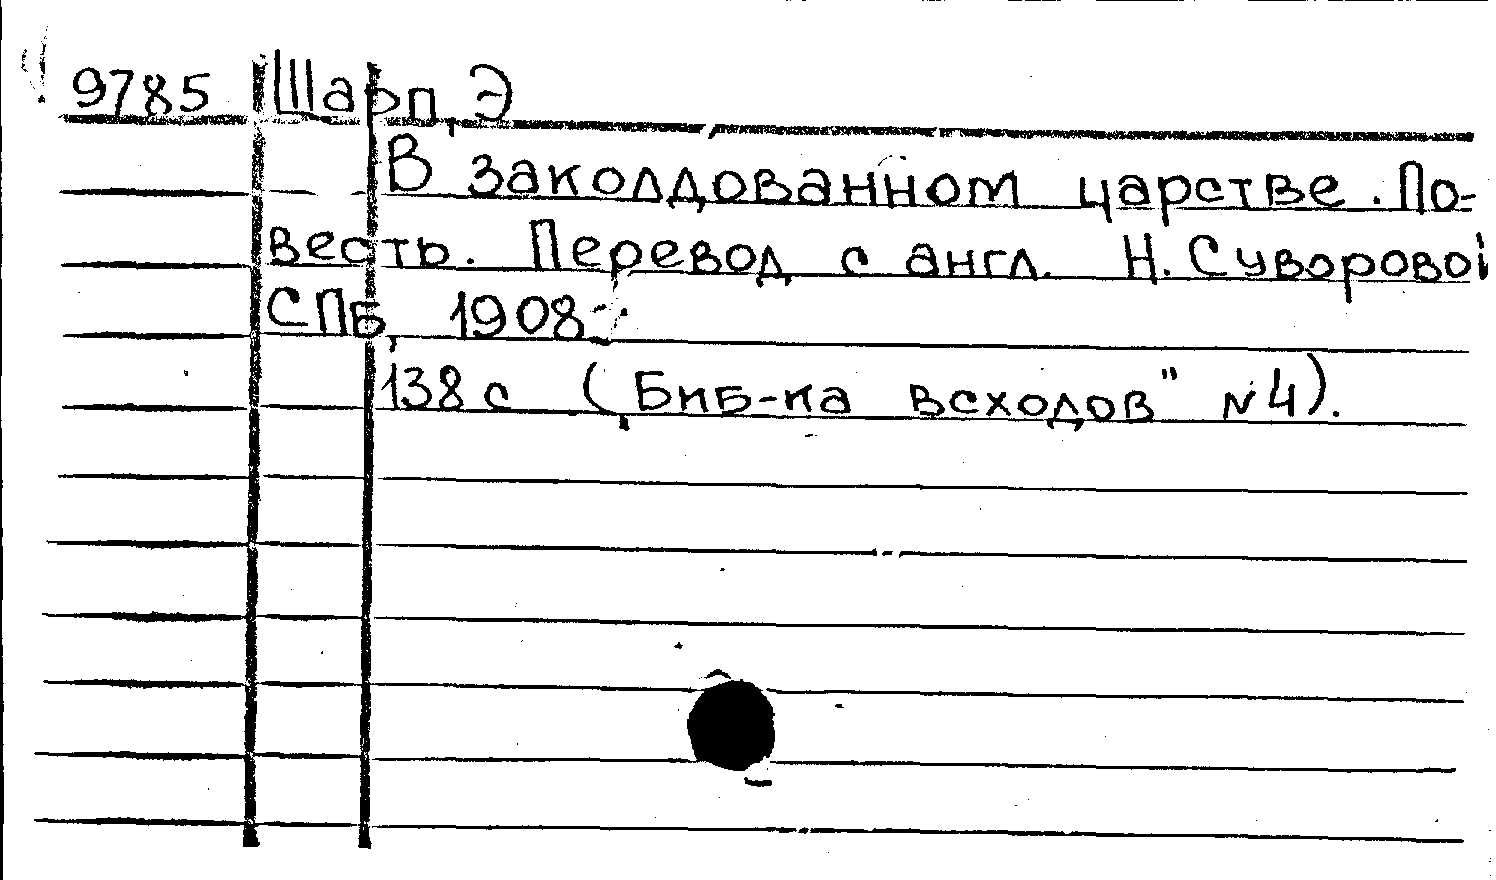 9785 Шарп, Э
В заколдованном царстве. По-
весть. Перевод с англ. Н. Суворовой
СПБ, 1908.
138 с (Биб-ка "всходов" N4).